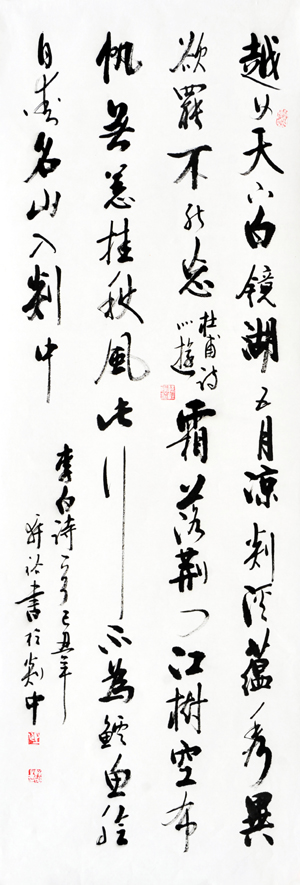 越女天下白镜湖五月凉剡溪蕴秀異
欲罷不能忘
杜甫诗
壮遊
霜落荆门江樹空布
帆無恙挂秋風此行不為鱸魚鲙
自愛名山入剡中
李白诗一首己丑年
書於剡中